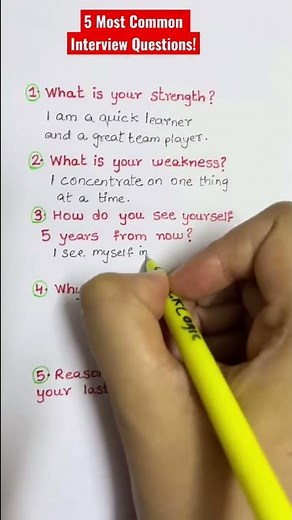 5 Most Common
Interview Questions!
1. What is your strength?
I am a quick learner
and a great team player.
2. What is your weakness?
I concentrate on one thing
at a time.
3. How do you see yourself
5 years from now?
I see myself in
4. Why
5. Reaso
your last